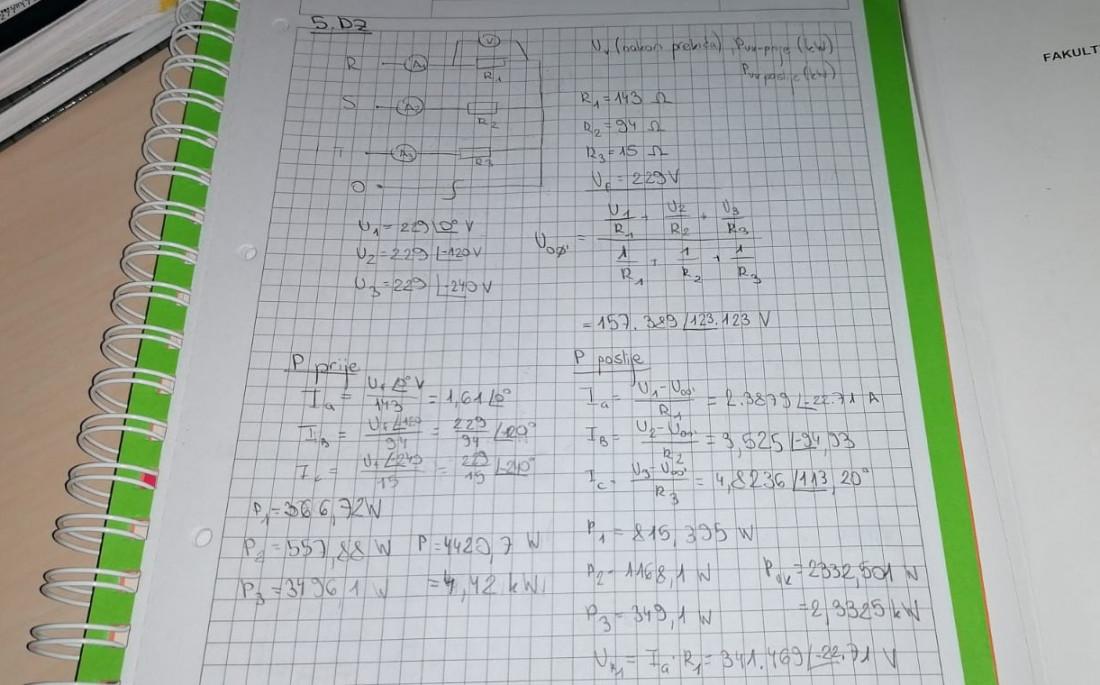 5. DZ
R A V R1
S A R2
T A R3
O
U1 = 229 ∠0° V
U2 = 229 ∠-120 V
U3 = 229 ∠-240 V
UV (nakon prekida) Puk-prije (kW)
Puk poslije (kW)
R1 = 143 Ω
R2 = 94 Ω
R3 = 15 Ω
Uf = 229 V
U00' = (U1/R1 + U2/R2 + U3/R3) / (1/R1 + 1/R2 + 1/R3)
= 157.389 ∠123.123 V
P prije
Ia = Uf ∠0° V / 143 = 1,61 ∠0°
IB = Uf ∠120 / 94 = 229/94 ∠-120°
Ic = Uf ∠240 / 15 = 229/15 ∠-240°
P1 = 366,72 W
P2 = 557,88 W P = 4420,7 W
P3 = 3496,1 W = 4,42 kW
P poslije
Ia = (U1 - U00') / R1 = 2.3879 ∠-22.71 A
IB = (U2 - U00') / R2 = 3,525 ∠-94,93
Ic = (U3 - U00') / R3 = 4,8236 ∠113,20°
P1 = 815,395 W
P2 = 1168,1 W Puk = 2332,501 W
P3 = 349,1 W = 2,3325 kW
UR1 = Ia · R1 = 341.469 ∠-22.71 V
FAKULT